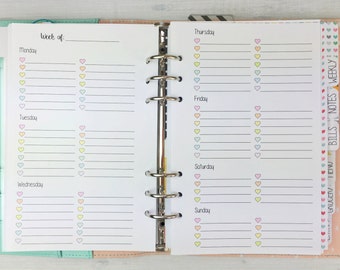 Week of:
Monday
Tuesday
Wednesday
Thursday
Friday
Saturday
Sunday
WEEKLY
NOTES
BILLS
MENU
GROCERY